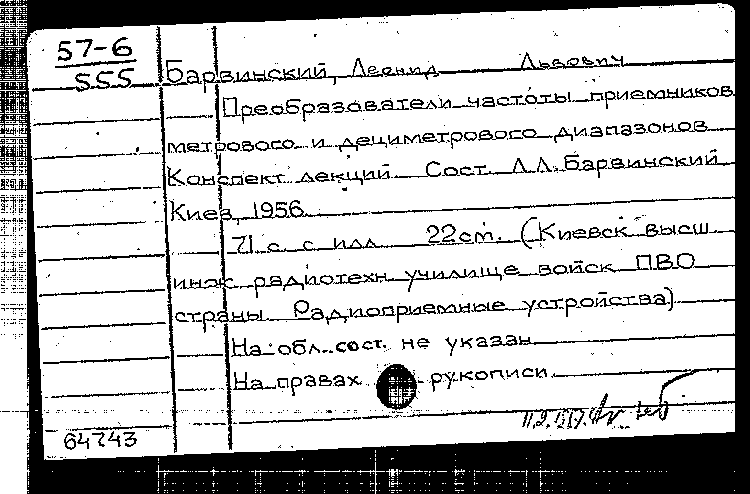 57-6
555
Барвинский, Леонид Львович
Преобразователи частоты приемников
метрового и дециметрового диапазонов
Конспект лекций Сост. Л.Л. Барвинский
Киев, 1956.
71 с. с илл 22см. (Киевск высш
инж радиотехн училище войск ПВО
страны. Радиоприемные устройства)
На обл. сост. не указан
На правах рукописи
64743